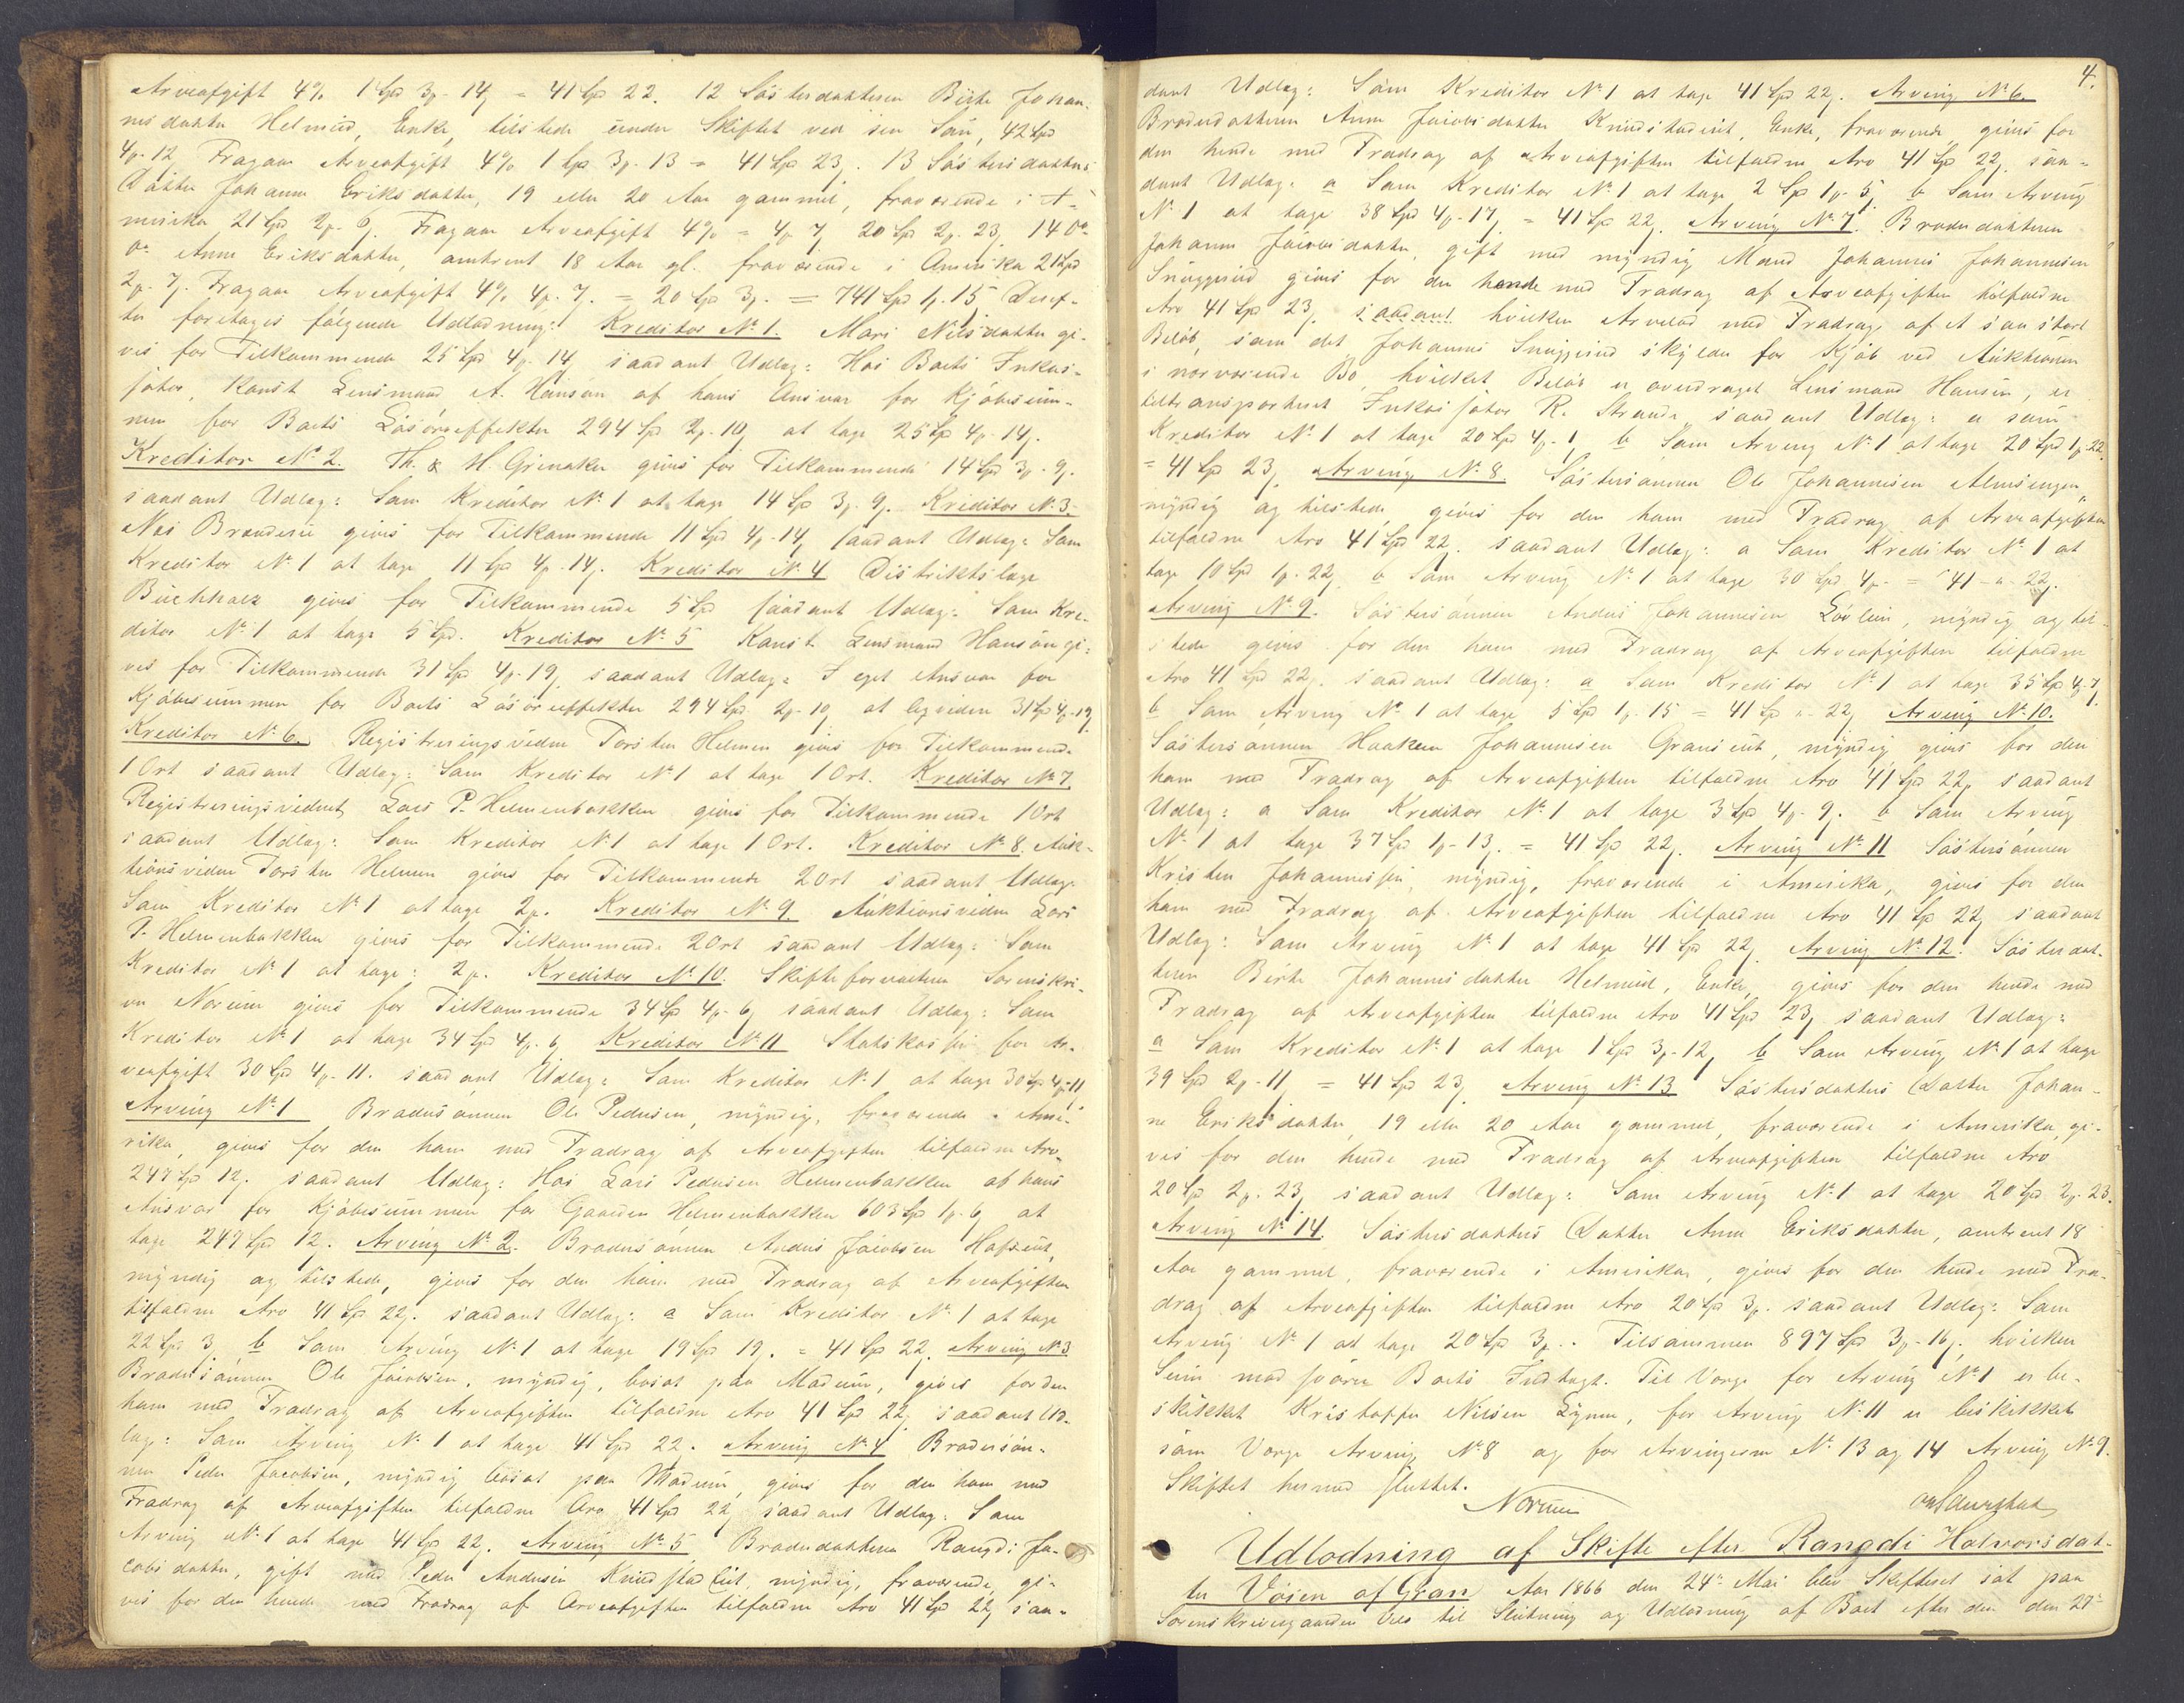 Arveafgift 4% 1 Spd 3ꝑ - 14ſ = 41 Spd 22. 12 Søsterdatteren Birthe Johan-
nesdatter Helmeid, Enke, tilstede under Skiftet ved sin Søn, 42 Spd
4ꝑ - 12 Fragaar Arveafgift 4% 1 Spd 3ꝑ - 13 = 41 Spd 23ſ. 13 Søsterdatters
Datter Johanne Eriksdatter, 19 eller 20 Aar gammel, fraværende i A-
merika 21 Spd 2ꝑ - 6ſ. Fragaar Arveafgift 4% = 4ꝑ 7ſ 20 Spd 2ꝑ. 23ſ. 14 Do
Do Anne Eriksdatter, omtrent 18 Aar gl. fraværende i Amerika 21 Spd
2ꝑ. 7ſ. Fragaar Arveafgift 4% 4ꝑ. 7ſ. = 20 Spd 3ꝑ. = 741 Spd 1ꝑ. 15 Deref-
ter foretages følgende Udlodning: Kreditor No 1. Mari Nilsdatter gi-
ves for Tilkommende 25 Spd 4ꝑ. 14ſ saadant Udlæg: Hos Boets Inkas-
sator, Konst Lensmand A. Hansøn af hans Ansvar for Kjøbesum-
men for Boets Løsøreeffekter 294 Spd 2ꝑ - 10ſ at tage 25 Spd 4ꝑ - 14ſ.
Kreditor No 2. Th. & H. Grinaker gives for Tilkommende 14 Spd 3ꝑ - 9ſ.
saadant Udlæg: Som Kreditor No 1 at tage 14 Spd 3ꝑ. 9ſ. Kreditor No 3.
Næs Brænderi gives for Tilkommende 11 Spd 4ꝑ - 14ſ saadant Udlæg: Som
Kreditor No 1 at tage 11 Spd 4ꝑ - 14ſ. Kreditor No 4 Distriktslæge
Buchholz gives for Tilkommende 5 Spd saadant Udlæg: Som Kre-
ditor No 1 at tage 5 Spd. Kreditor No 5 Konst. Lensmand Hansøn gi-
ves for Tilkommende 31 Spd 4ꝑ - 19ſ saadant Udlæg: I eget Ansvar for
Kjøbesummen for Boets Løsøreeffekter 294 Spd 2ꝑ - 10ſ at 31 Spd 4ꝑ - 19ſ.
Kreditor No 6. Registreringsvidne Torsten Helmen gives for Tilkommende
1 Ort saadant Udlæg: Som Kreditor No 1 at tage 1 Ort. Kreditor No 7.
Registreringsvidnet Lars P. Helmenbakken gives for Tilkommende 1 Ort
saadant Udlæg: Som Kreditor No 1 at tage 1 Ort. Kreditor No 8. Auk-
tionsvidne Torsten Helmen gives for Tilkommende 2 Ort saadant Udlæg:
Som Kreditor No 1 at tage 2ꝑ. Kreditor No 9. Auktionsvidne Lars
P. Helmenbakken gives for Tilkommende 2 Ort saadant Udlæg: Som
Kreditor No 1 at tage: 2ꝑ. Kreditor No 10. Skifteforvalteren Sorenskri-
ver Norum gives for Tilkommende 34 Spd 4ꝑ - 6ſ saadant Udlæg: Som
Kreditor No 1 at tage 34 Spd 4ꝑ. 6ſ Kreditor No 11 Statskassen for Ar-
veafgift 30 Spd 4ꝑ - 11. saadant Udlæg: Som Kreditor No 1 at tage 30 Spd 4ꝑ - 11
Arving No 1 Brodersønnen Ole Pedersen, myndig, fraværende i Ame-
rika, gives for den ham med Fradrag af Arveafgiften tilfaldne Arv
247 Spd 12ſ. saadant Udlæg: Hos Lars Pedersen Helmenbakken af hans
Ansvar for Kjøbesummen for Gaarden Helmenbakken 603 Spd 1ꝑ - 6ſ at
tage 247 Spd 12. Arving No 2. Brodersønnen Anders Jacobsen
myndig og tilstede, gives for den ham med Fradrag af Arveafgiften
tilfaldne Arv 41 Spd 22ſ. saadant Udlæg: a Som Kreditor No 1 at tage
22 Spd 3ſ b Som Arving No 1 at tage 19 Spd 19ſ. = 41 Spd 22ſ. Arving No 3
Brodersønnen Ole Jacobsen, myndig, bosat paa Modum, gives for den
ham med Fradrag af Arveafgiften tilfaldne Arv 41 Spd 22ſ saadant Ud-
læg: Som Arving No 1 at tage 41 Spd 22. Arving No 4 Brodersøn-
nen Peder Jacobsen, myndig bosat paa Modum, gives for den ham med
Fradrag af Arveafgiften tilfaldne Arv 41 Spd 22ſ saadant Udlæg: Som
Arving No 1 at tage 41 Spd 22. Arving No 5 Broderdatteren Rangdi Ja-
cobsdatter, gift med Peder Andersen myndig, fraværende, gi-
ves for den hende med Fradrag af Arveafgiften tilfaldne Arv 41 Spd 22ſ saa-
4.
dant Udlæg: Som Kreditor No 1 at tage 41 Spd 22ſ. Arving No 6.
Broderdatteren Anne Jacobsdatter Enke, fraværende, gives for
den hende med Fradrag af Arveafgiften tilfaldne Arv 41 Spd 22ſ saa-
dant Udlæg: a Som Kreditor No 1 at tage 2 Spd 1ꝑ - 5ſ b Som Arving
No 1 at tage 38 Spd 4ꝑ - 17ſ = 41 Spd 22ſ. Arving No 7. Broderdatteren
Johanne Jacobsdatter, gift med myndig Mand Johannes Johannesen
Snuggerud gives for den hende med Fradrag af Arveafgiften tilfaldne
Arv 41 Spd 23ſ. saadant hvilken Arvelod med Fradrag af et saa stort
Beløb, som det Johannes Snuggerud skylder for Kjøb ved Auktionen
i nærværende Bo, hvilket Beløb er overdraget Lensmand Hansen, er
tiltransporteret Inkassator R. Strande, saadant Udlæg: a som
Kreditor No 1 at tage 20 Spd 4ꝑ - 1ſ b Som Arving No 1 at tage 20 Spd 1ꝑ - 22.
= 41 Spd 23ſ. Arving No 8. Søstersønnen Ole Johannesen Almsengen
myndig og tilstede, gives for den ham med Fradrag af Arveafgiften
tilfaldne Arv 41 Spd 22ſ. saadant Udlæg: a Som Kreditor No 1 at
tage 10 Spd 1ꝑ. 22ſ b Som Arving No 1 at tage 30 Spd 4ꝑ - = 41 - " - 22ſ.
Arving No 9. Søstersønnen Anders Johannesen Løvlien, myndig og til-
stede gives for den ham med Fradrag af Arveafgiften tilfaldne
Arv 41 Spd 22ſ. saadant Udlæg: a Som Kreditor No 1 at tage 35 Spd 4ꝑ - 7ſ
b Som Arving No 1 at tage 5 Spd 1ꝑ - 15 = 41 Spd " - 22ſ Arving No 10.
Søstersønnen Haaken Johannesen myndig gives for den
ham med Fradrag af Arveafgiften tilfaldne Arv 41 Spd 22ſ saadant
Udlæg: a Som Kreditor No 1 at tage 3 Spd 4ꝑ - 9ſ. b Som Arving
No 1 at tage 37 Spd 1ꝑ - 13ſ. = 41 Spd 22ſ. Arving No 11 Søstersønnen
Kristen Johannessen, myndig, fraværende i Amerika, gives for den
ham med Fradrag af Arveafgiften tilfaldne Arv 41 Spd 22ſ saadant
Udlæg: Som Arving No 1 at tage 41 Spd 22ſ Arving No 12. Søsterdat-
teren Birthe Johannesdatter Helmeid, Enke, gives for den hende med
Fradrag af Arveafgiften tilfaldne Arv 41 Spd 23ſ saadant Udlæg:
a Som Kreditor No 1 at tage 1 Spd 3ꝑ - 12ſ b Som Arving No 1 at tage
39 Spd 2ꝑ - 11ſ = 41 Spd 23ſ. Arving No 13 Søsterdatters Datter Johan-
ne Eriksdatter, 19 eller 20 Aar gammel, fraværende i Amerika, gi-
ves for den hende med Fradrag af Arveafgiften tilfaldne Arv
20 Spd 2ꝑ. 23ſ saadant Udlæg: Som Arving No 1 at tage 20 Spd 2ꝑ. 23.
Arving No 14. Søsterdatters Datter Anne Eriksdatter, omtrent 18
Aar gammel, fraværende i Amerika, gives for den hende med Fra-
drag af Arveafgiften tilfaldne Arv 20 Spd 3ꝑ. saadant Udlæg: Som
Arving No 1 at tage 20 Spd 3ꝑ.. Tilsammen 897 Spd 3ꝑ - 16ſ. hvilken
Sum modsvarer Boets Indtægt. Til Værge for Arving No 1 er be-
skikket Kristoffer Nilsen Lynne, for Arving No 11 er beskikket
som Værge Arving No 8 og for Arvingerne No 13 og 14 Arving No 9.
Skiftet hermed sluttet.
Norum
Udlodning af Skifte efter Rangdi Halvorsdat-
ter Vøien af Gran Aar 1866 den 24de Mai blev Skifteret sat paa
Sorenskrivergaarden til Slutning og Udlodning af Boet efter den den 27de